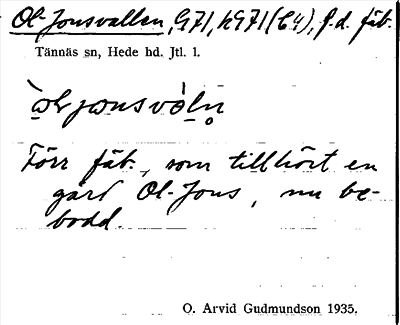 Ol-Jonsvallen, G71, hG71(C4), f.d. fäb.
Tännäs sn, Hede hd. Jtl. l.
Förr fäb., som tillhört en
gård Ol-Jons, nu be-
bodd.
O. Arvid Gudmundson 1935.